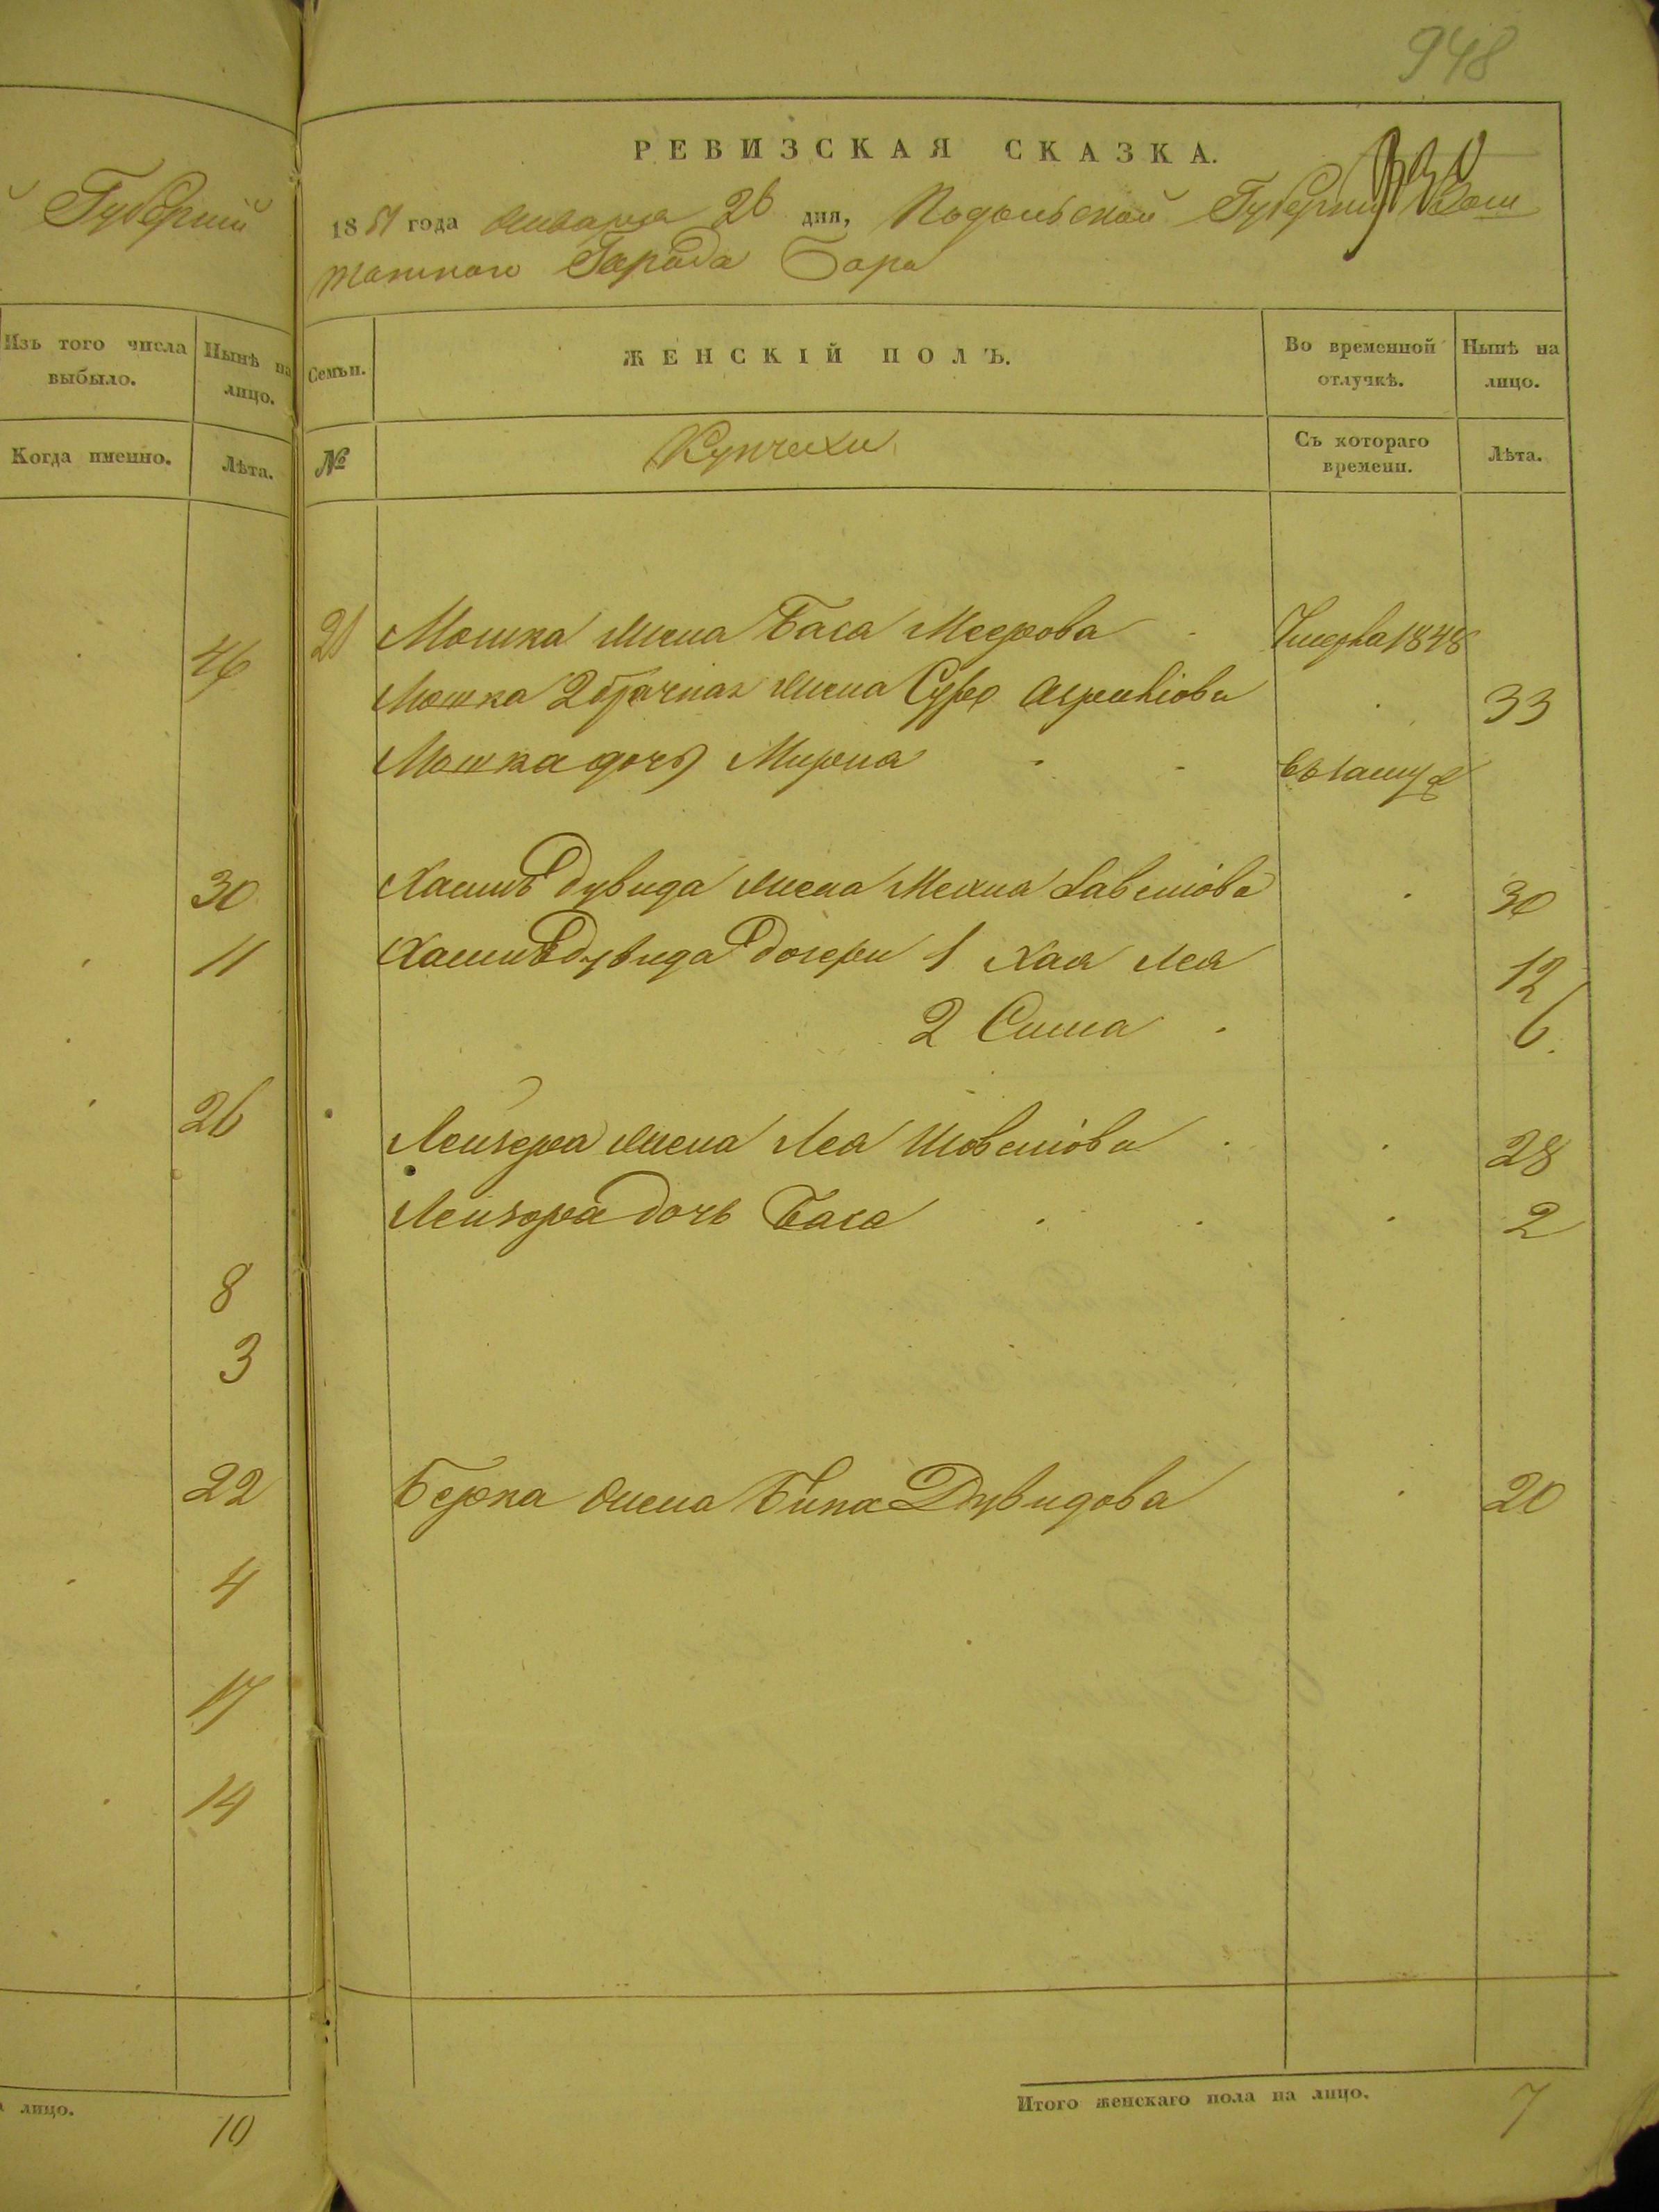 948
Губерніи
Изъ того числа выбыло.
Нынѣ на лицо.
Когда именно.
Лѣта.
46
30
11
26
8
3
22
4
17
14
лицо.
10
РЕВИЗСКАЯ СКАЗКА.
1851 года Января 26 дня, Подольской Губерніи
Города Бара
Семьи.
ЖЕНСКІЙ ПОЛЪ.
Во временной отлучкѣ.
Нынѣ на лицо.
№
Купчихи
Съ котораго времени.
Лѣта.
21 Мошка жена Баса Меерова Умерла 1848
Мошка 2 брачная жена Сура 33
Мошка дочь Мирка въ замуж
Дувида жена 30
Дувида дочери 1 Хая Лея 12
2 Сима 6
Лейзера жена Лея 28
Лейзора дочь Баса 2
Берка жена Дувидова 20
Итого женскаго пола на лицо.
7